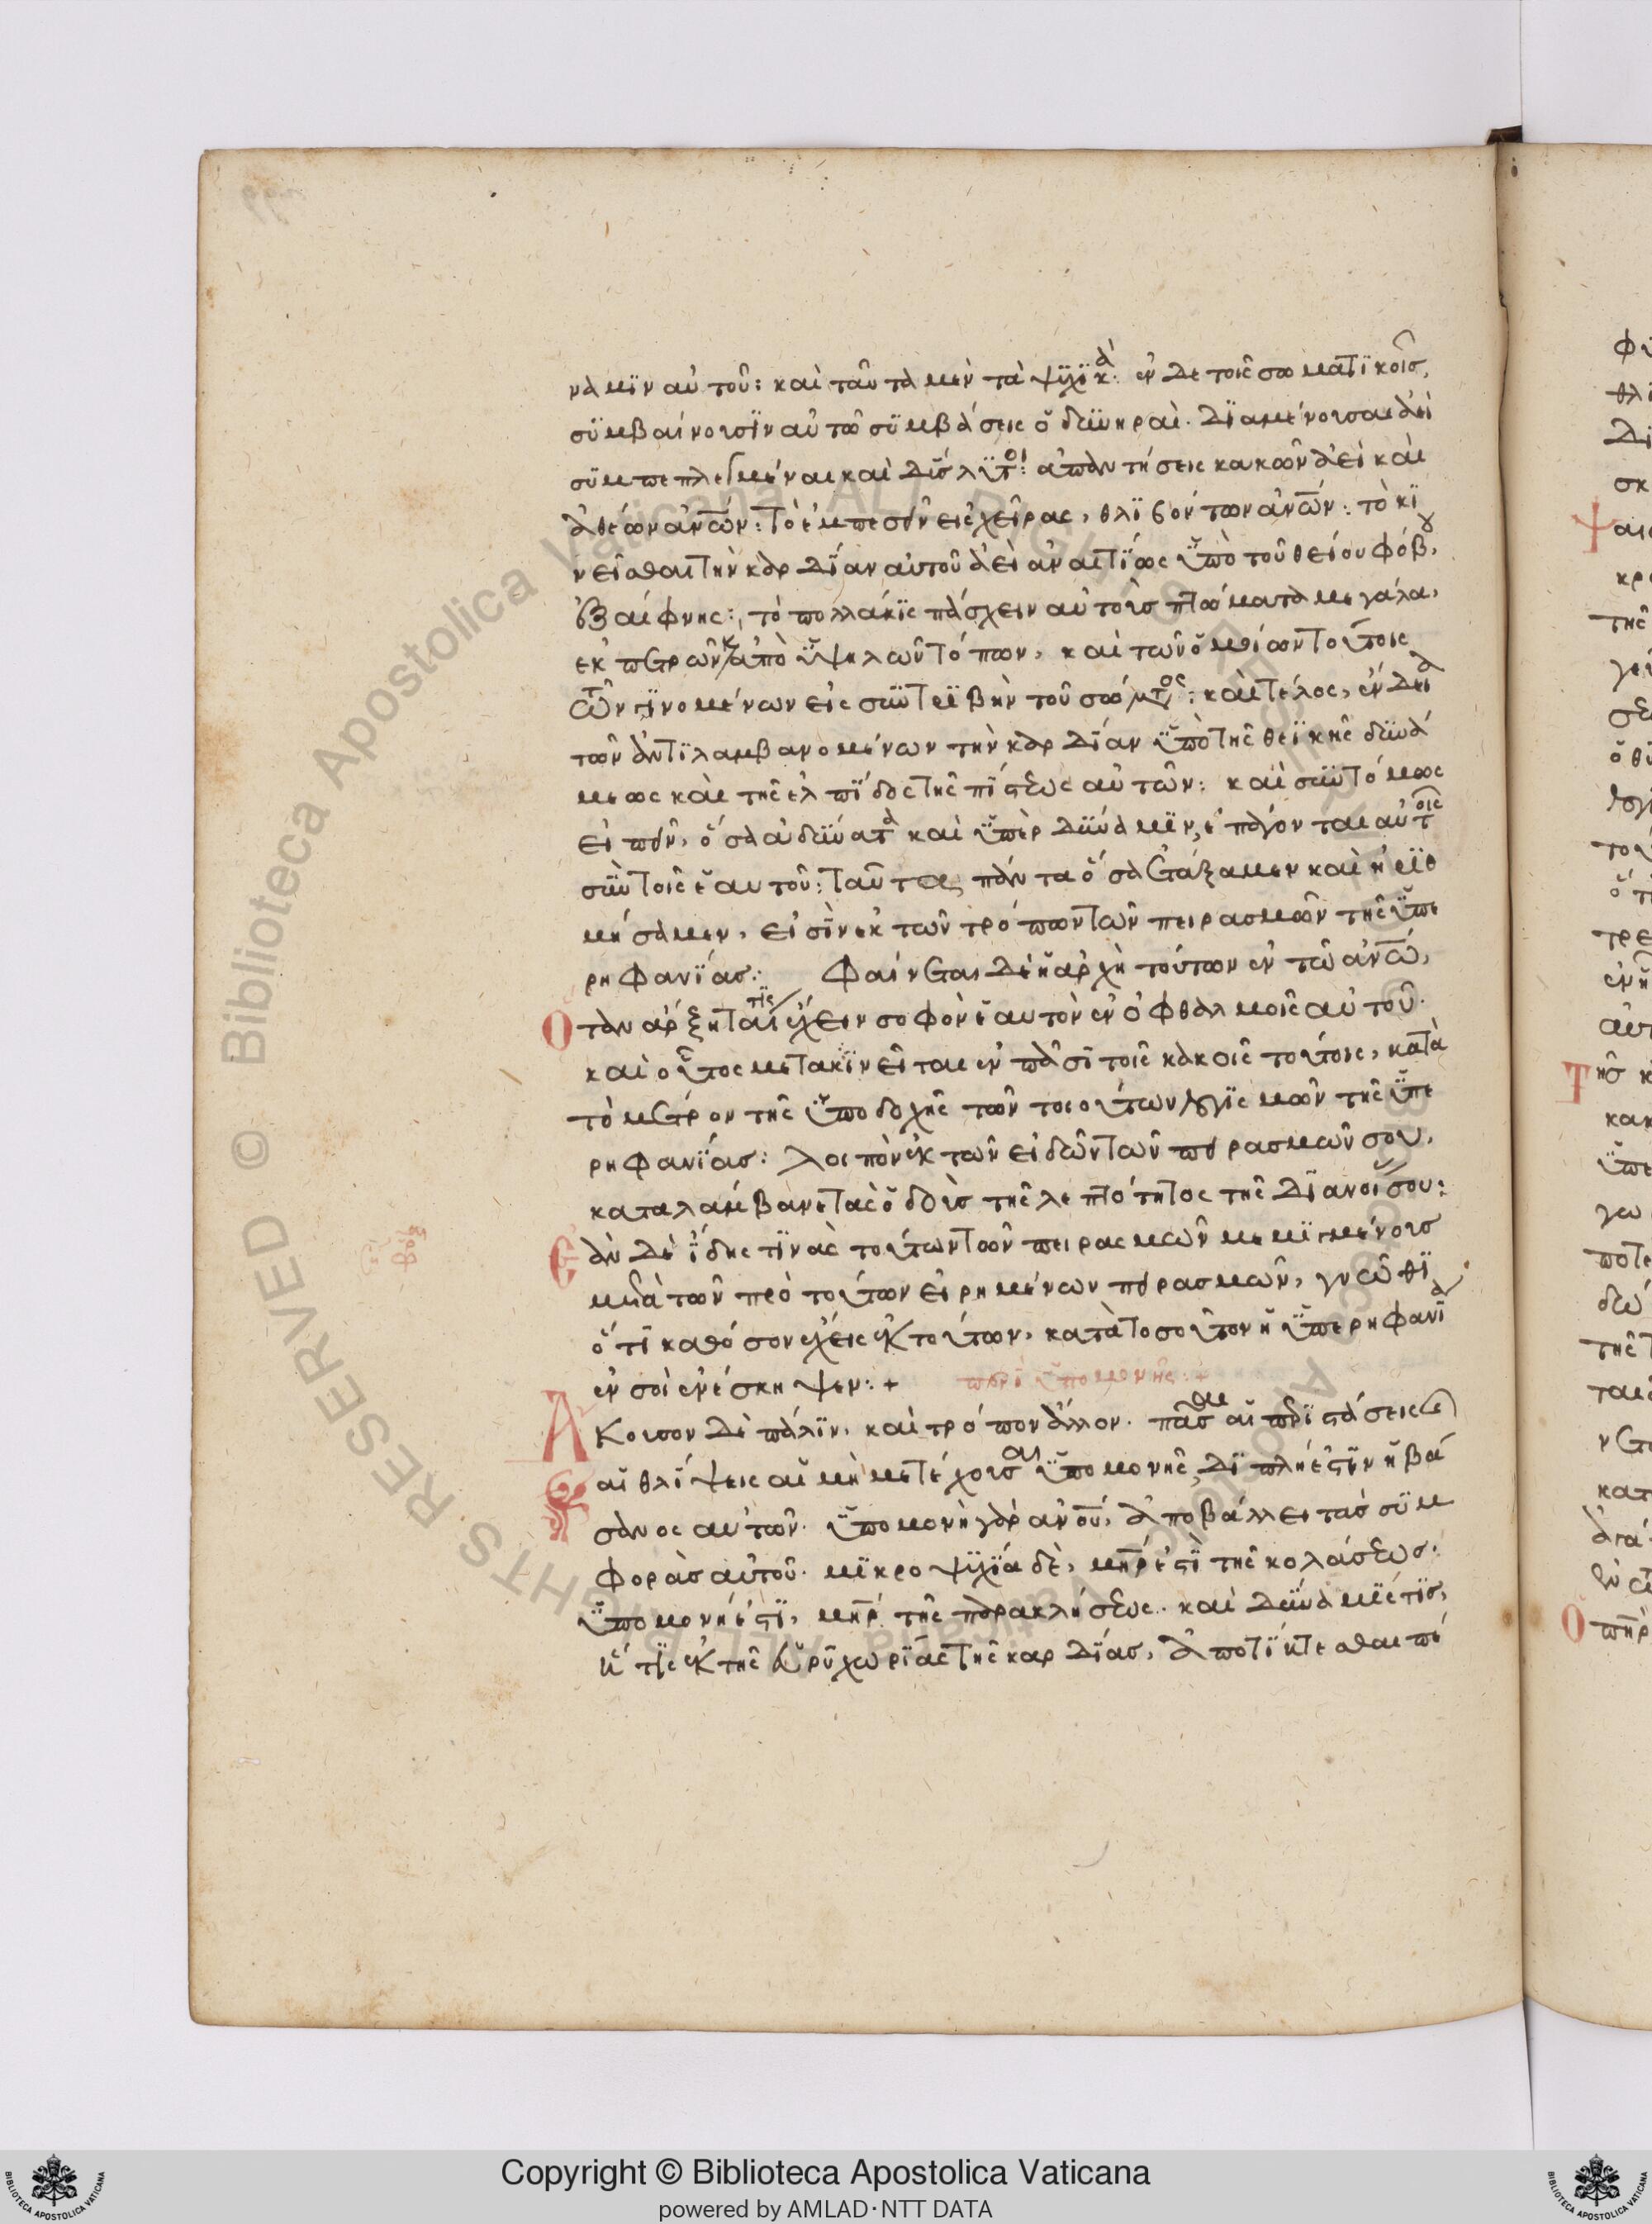 ναμϊν αὐτοῦ: καὶ ταῦτα μὲν τὰ ψϋχϊκὰ: ἐν δε τοῖς σωματϊκοῖσ,
σϋμβαίνουσϊν αὐτῶ σϋμβάσεις ὀδϋνηραὶ. διαμένουσαι ἀεὶ
σϋμπεπλεγμέναι καὶ δϋσλϋτοι: ἀπαντήσεις κακῶν ἀεὶ καὶ
ἀθέων ἀν̅ω̅ν: τὸ ἐμπεσεῖν εἰς χεῖρας, θλϊβόντων ἀν̅ω̅ν: τὸ κϊ
νεῖσθαι τὴν καρδΐαν αὐτοῦ ἀεὶ αναιτΐως ϋπὸ τοῦ θείου φόβου,
ἐξαίφνης: τὸ πολλάκϊς πάσχειν αὐτοὺσ πτώματα μεγάλα,
ἐκ πετρῶν κ ἀπὸ ϋψηλῶν τόπων, καὶ τῶν ὁμοίων τούτοις
τῶν γϊνομένων εἰς σϋντρϊβὴν τοῦ σώματος: καὶ τέλος, ἐν δεία
τῶν ἀντϊλαμβανομένων τὴν καρδΐαν ϋπὸ τῆς θεϊκῆς δϋνά
μεως καὶ τῆς ἐλπΐδος τῆς πΐστεως αὐτῶν: καὶ σϋντόμως
εἰπεῖν, ὅσα ἀδϋνατὰ καὶ ϋπὲρ δϋναμϊν, ἐπάγονται αὐτοῖς
σϋν τοῖς ἑαυτοῦ: ταῦτα πάντα ὅσα ἐτάξαμεν καὶ ἠρϊθ
μήσαμεν, εἰσὶν ἐκ τῶν τρόπων τῶν πειρασμῶν τῆς ϋπε
ρηφανΐασ: Φαίνεται δὲ ἡ ἀρχὴ τούτων ἐν τῶ ἀν̅ω̅,
Ὅταν ἄρξηταί τϊς ἔχειν σοφὸν ἑαυτὸν ἐν ὀφθαλμοῖς αὐτοῦ.
καὶ οὗτος μετακϊνεῖται ἐν πᾶσϊ τοῖς κακοῖς τούτοις, κατὰ
τὸ μέτρον τῆς ϋποδοχῆς τῶν τοιούτων λογϊσμῶν τῆς ϋπε
ρηφανΐασ: λοιπὸν ἐκ τῶν εἰδῶν τῶν πειρασμῶν σου,
καταλάμβανε τὰς ὁδοὺσ τῆς λεπτότητος τῆς διανοίας σου:
Ἐὰν δὲ ἴδης τϊνὰς τούτων τῶν πειρασμῶν μεμϊγμένουσ
μετὰ τῶν πρὸ τούτων εἰρημένων πειρασμῶν, γνῶθϊ
ὅτϊ καθόσον ἔχεις ἐκ τούτων, κατὰ τοσοῦτον ἡ ϋπερηφανία
ἐν σοὶ ἐνέσκηψεν:+ περὶ ϋπομονῆς:+
Ἄκουσον δὲ πάλϊν, καὶ τρόπον ἄλλον. πᾶσαι αἱ περϊστάσεις καὶ
αἱ θλΐψεις αἱ μὴ μετέχουσαι ϋπομονῆς, διπλῆ ἐστϊν ἡ βά
σανος αὐτῶν. ϋπομονὴ γὰρ ἀν̅ο̅υ̅, ἀποβάλλει τὰσ σϋμ
φορὰσ αὐτοῦ. μϊκροψϋχΐα δὲ, μ̅η̅ρ̅ ἐστϊ τῆς κολάσεωσ:
ϋπομονή ἐστϊ, μ̅η̅ρ̅ τῆς παρακλήσεως. καὶ δϋναμΐς τϊσ,
ἥτϊς ἐκ τῆς εὐρϋχωρΐας τῆς καρδΐασ, ἀποτΐκτεσθαι πέ